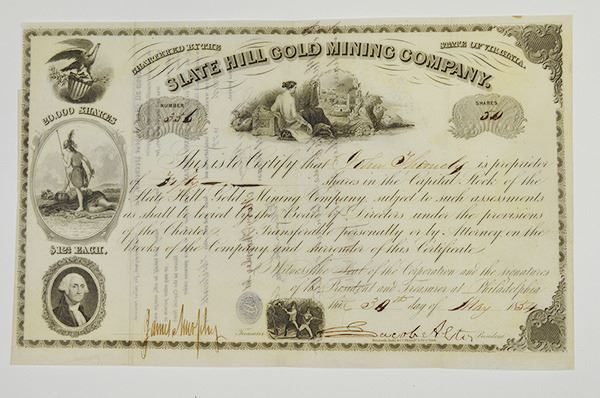 CHARTERED BY THE STATE OF VIRGINIA.
SLATE HILL GOLD MINING COMPANY.
20,000 SHARES
NUMBER
556
SHARES
50
This is to Certify that is proprietor
of Fifty shares in the Capital Stock of the
Slate Hill Gold Mining Company, subject to such assessments
as shall be levied by the Board of Directors under the provisions
of the Charter. Transferable personally or by Attorney on the
Books of the Company and Surrender of this Certificate.
$12½ EACH.
Witness the Seal of the Corporation and the signatures
of the President and Treasurer at Philadelphia
this 30th day of May 185
James Murphy Treasurer
Jacob President